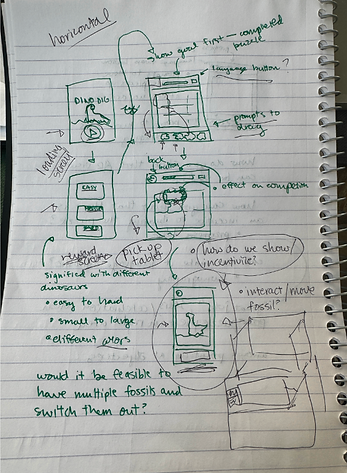 horizontal
show goal first – completed
puzzle
language button?
DINO DIG
prompts to
loading
screen
back
button
EASY
effect on completion
pick up
tablet
how do we show/
incentivize?
signified with different
dinosaurs
easy to hard
small to large
different colors
interact/move
fossil?
would it be feasible to
have multiple fossils and
switch them out?